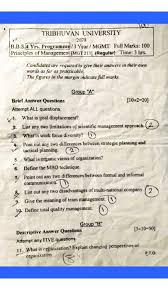 TRIBHUVAN UNIVERSITY
2078
B.B.S. (4 Yrs. Programme) / I Year / MGMT Full Marks: 100
Principles of Management (MGT 213) (Regular) Time: 3 hrs.
Candidates are required to give their answers in their own
words as far as practicable.
The figures in the margin indicate full marks.
Group "A"
Brief Answer Questions [10×2=20]
Attempt ALL questions.
1. What is goal displacement?
2. List any two limitations of scientific management approach.
3. What is work force diversity?
4. Point out any two differences between strategic planning and
tactical planning.
5. What is organic views of organization?
6. Define the MBO technique.
7. Point out any two differences between formal and informal
communication.
8. List out any two disadvantages of multi-national company.
9. Give the meaning of team management.
10. Define total quality management.
Group "B"
Descriptive Answer Questions [5×10=50]
Attempt any FIVE questions
11. What is organization? Explain changing perspectives of
organization.